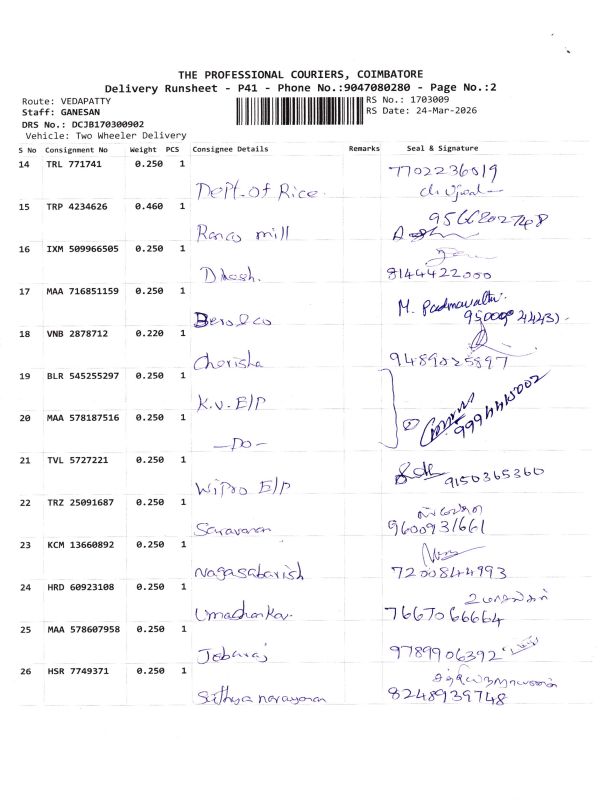 THE PROFESSIONAL COURIERS, COIMBATORE
Delivery Runsheet - P41 - Phone No.:9047080280 - Page No.:2
Route: VEDAPATTY RS No.: 1703009
Staff: GANESAN RS Date: 24-Mar-2026
DRS No.: DCJB170300902
Vehicle: Two Wheeler Delivery
S No Consignment No Weight PCS Consignee Details Remarks Seal & Signature
14 TRL 771741 0.250 1 7702236019
Dept. of Rice.
15 TRP 4234626 0.460 1 9566802748
Ranco mill
16 IXM 509966505 0.250 1
Dhosh. 8144422000
17 MAA 716851159 0.250 1 M. Padmavathi.
Berolco
18 VNB 2878712 0.220 1
Cherisha 9489025897
19 BLR 545255297 0.250 1
K.V. E/P
20 MAA 578187516 0.250 1 ② 9994415002
—DO—
21 TVL 5727221 0.250 1
Wipro E/P 9150365360
22 TRZ 25091687 0.250 1
Saravanan 9600931661
23 KCM 13660892 0.250 1
Nagasabarish 7200844993
24 HRD 60923108 0.250 1
Umashankar. 7667066664
25 MAA 578607958 0.250 1
Jebaraj 9789906392
26 HSR 7749371 0.250 1
Sathya narayanan 8248939748